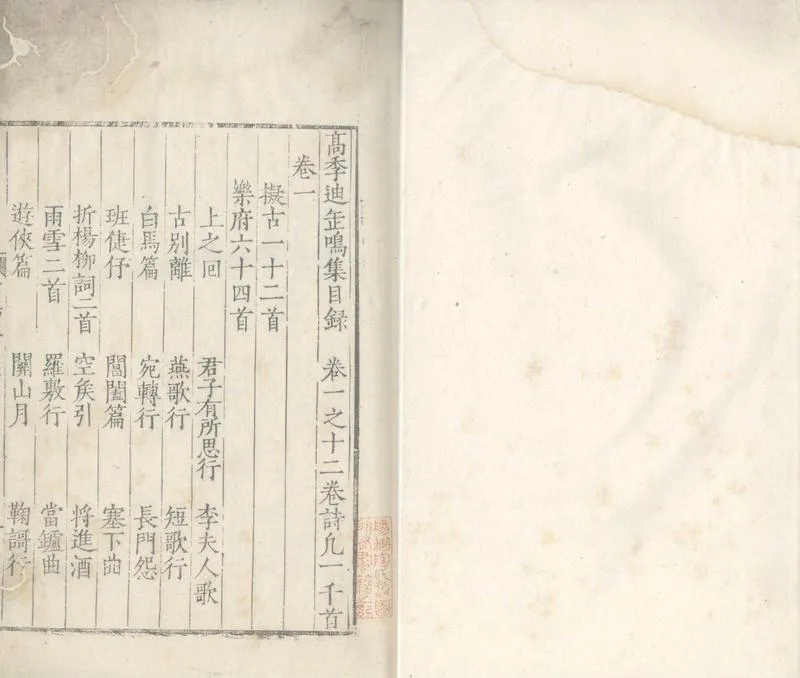 高季迪缶鳴集目録 卷一之十二卷詩凢一千首
卷一
擬古一十二首
樂府六十四首
上之回 君子有所思行 李夫人歌
古别離 燕歌行 短歌行
白馬篇 宛轉行 長門怨
班倢伃 閶闔篇 塞下曲
折楊柳詞二首 空矦引 將進酒
雨雪二首 羅敷行 當鑪曲
遊俠篇 關山月 鞠謌行